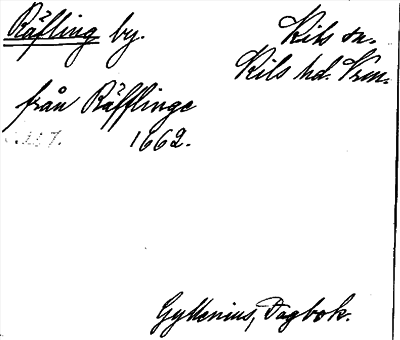 Räfling by. Kils sn.
Kils hd. Vrm.
från Räfflinge
1662.
Gyllenius, Dagbok.